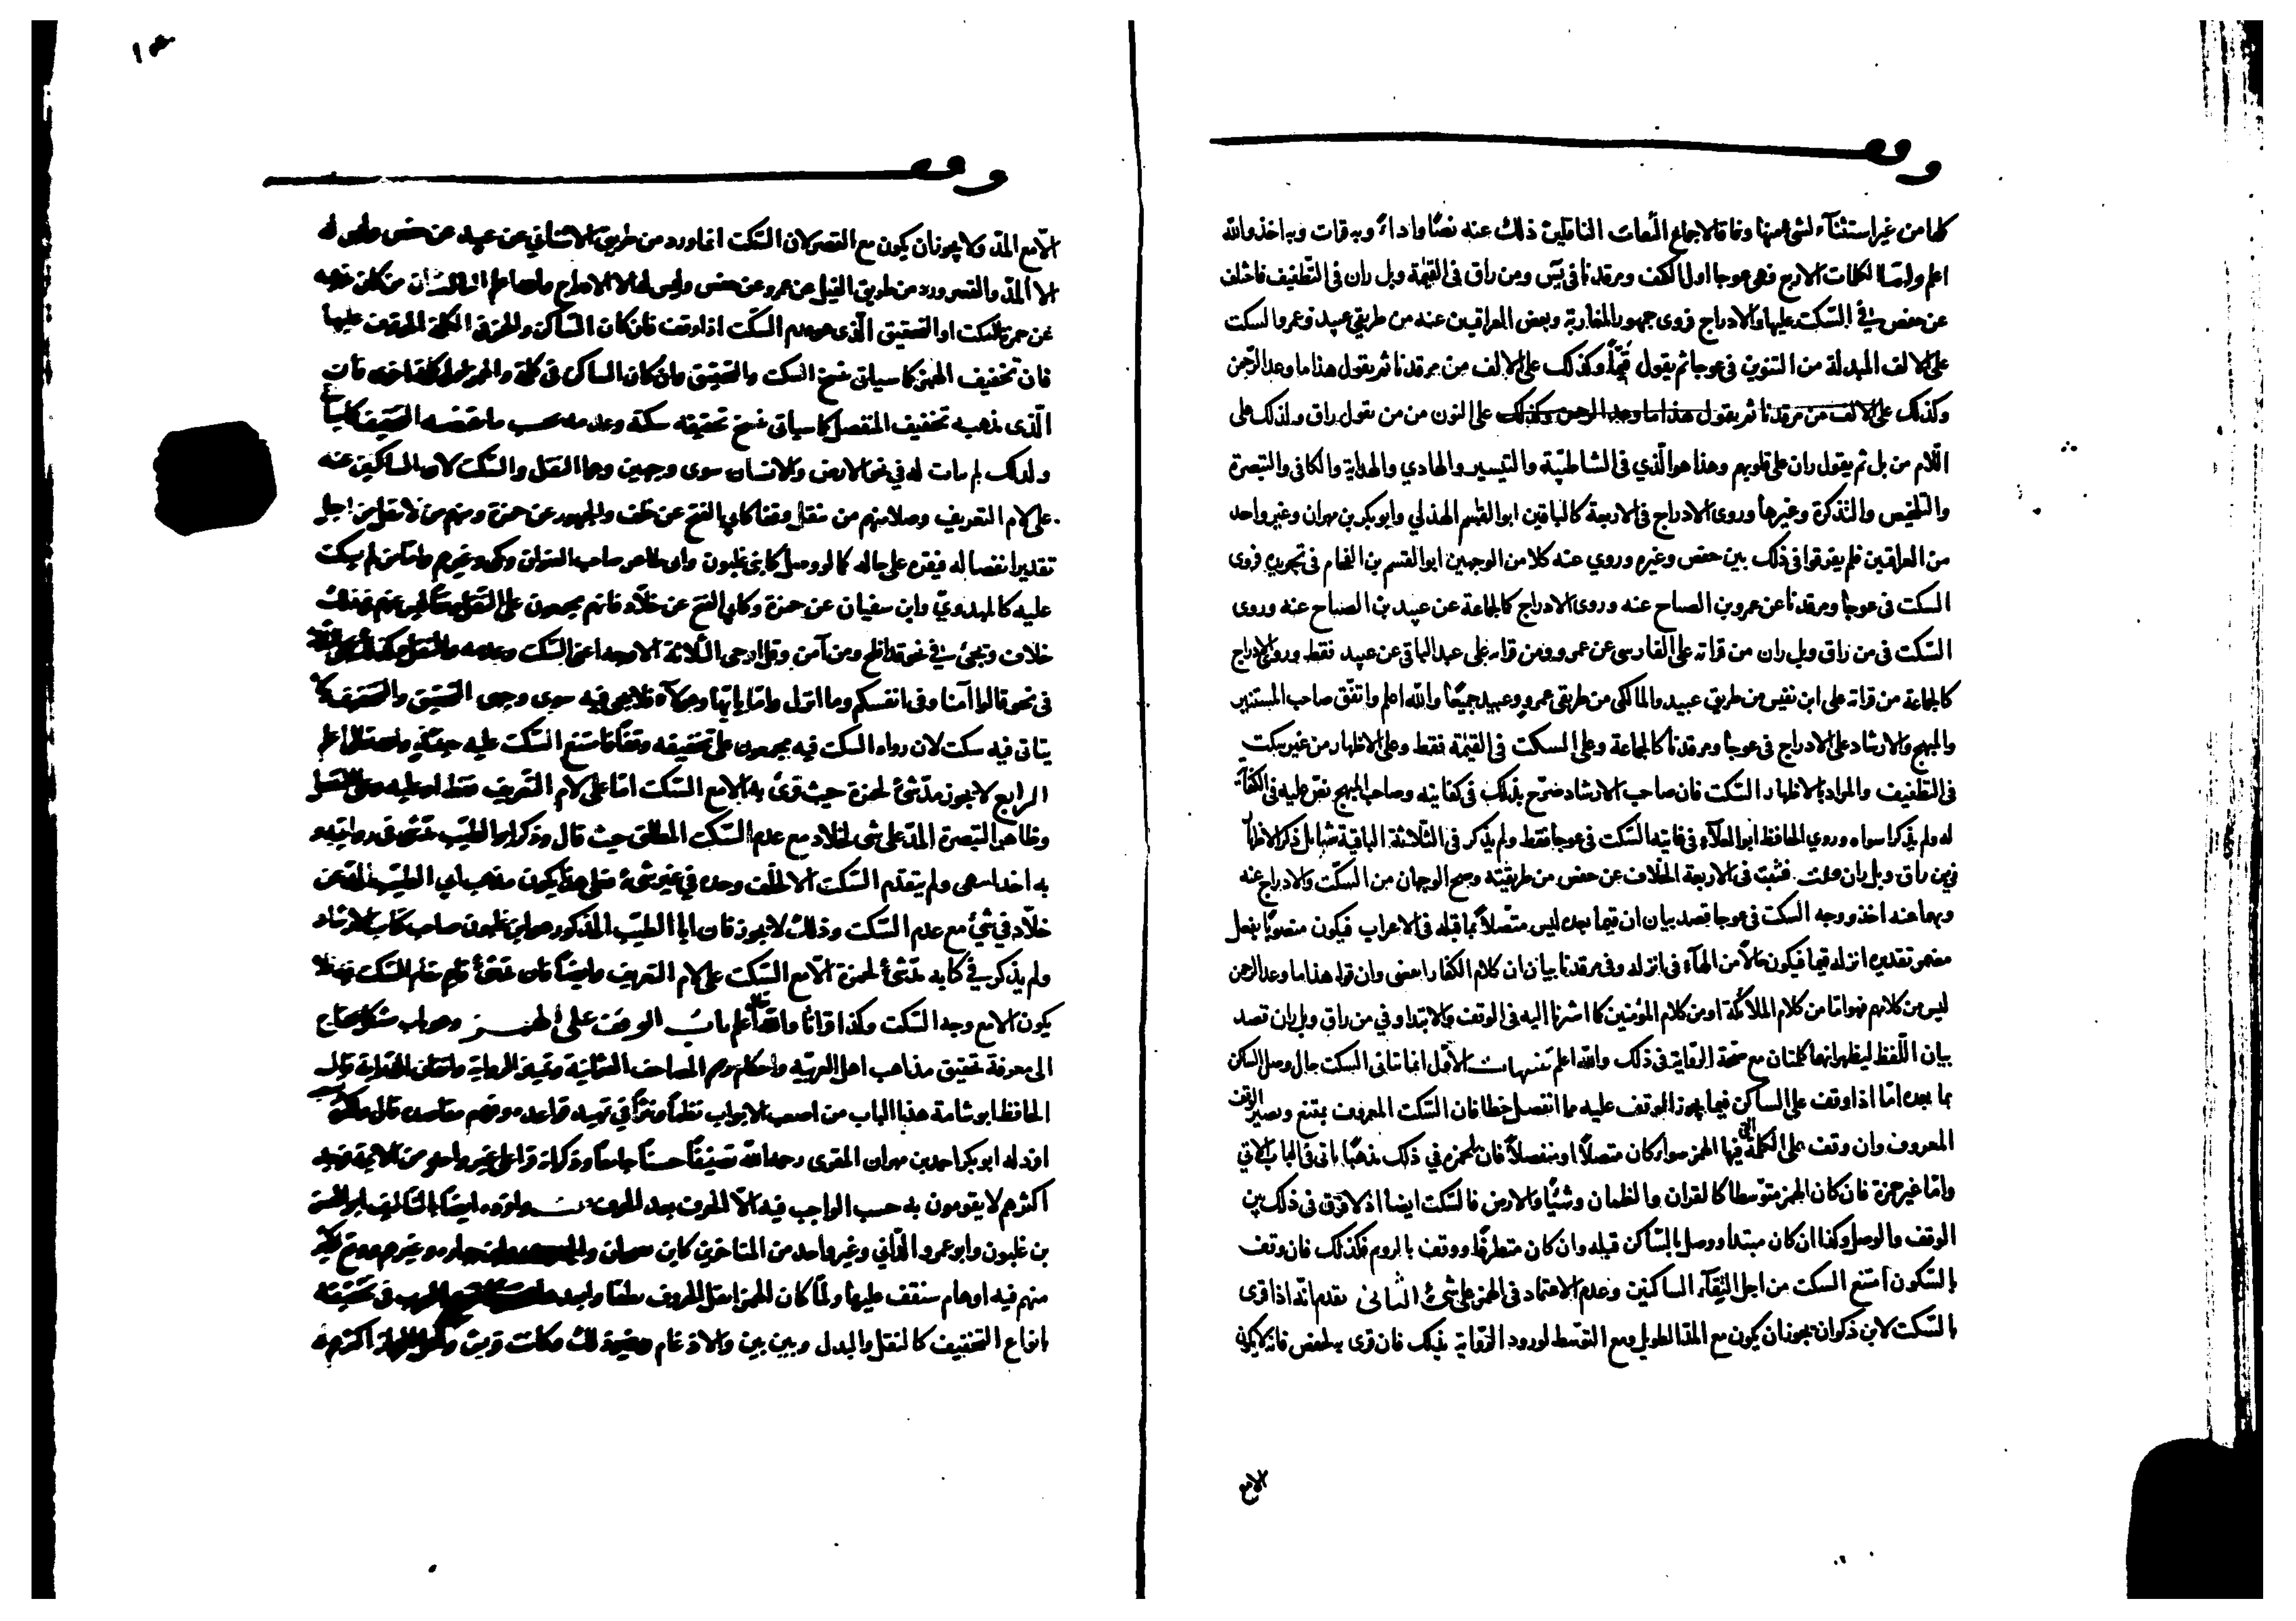 وقف
كلها من غير استثناء لشيء منها وفاقا لاجماع الثقات الناقلين ذلك عنه نصًا واداءً وبه قرات وبه اخذ والله
اعلم واما الكلمات الاربع فهي عوجا اول الكهف ومرقدنا في يس ومن راق في القيمة وبل ران في التطفيف فاختلف
عن حفص في السكت عليها والادراج فروى جمهور المغاربة وبعض العراقيين عنه من طريقي عبيد وعمرو السكت
على الالف المبدلة من التنوين في عوجا ثم يقول قيّمًا وكذلك على الالف من مرقدنا ثم يقول هذا ما وعد الرحمن
وكذلك على الالف من مرقدنا ثم يقول هذا ما وعد الرحمن وكذلك على النون من من يقول راق وكذلك على
اللام من بل ثم يقول ران على قلوبهم وهذا هو الذي في الشاطبيّة والتيسير والهادي والهداية والكافي والتبصرة
والتلخيص والتذكرة وغيرها وروى الادراج في الاربعة كالباقين ابو القسم الهذلي وابو بكر بن مهران وغير واحد
من العراقيين فلم يفرقوا في ذلك بين حفص وغيره وروي عنه كلا من الوجهين ابو القسم بن الفحام في تجريده فروى
السكت في عوجا ومرقدنا عن عمرو بن الصباح عنه وروى الادراج كالجماعة عن عبيد بن الصباح عنه وروى
السكت في من راق وبل ران من قراته على الفارسي عن عمرو ومن قراته على عبد الباقي عن عبيد فقط وروى الادراج
كالجماعة من قراته على ابن نفيس من طريقي عبيد والمالكي من طريقي عمرو وعبيد جميعًا والله اعلم واتفق صاحب المستنير
والمبهج والارشاد على الادراج في عوجا ومرقدنا كالجماعة وعلى السكت في القيمة فقط وعلى الاظهار من غير سكت
في التطفيف والمراد بالاظهار السكت فان صاحب الارشاد صرّح بذلك في كفايته وصاحب المبهج نص عليه في الكفاية
له ولم يذكرا سواه وروي الحافظ ابو العلاء في غايته السكت في عوجا فقط ولم يذكر في الثلاثة الباقية شيئا بل ذكر الاظهار
في من راق وبل ران قلت فثبت في الاربعة الخلاف عن حفص من طريقيه وصح الوجهان من السكت والادراج عنه
وبهما عنه اخذ ووجه السكت في عوجا قصد بيان ان قيما بعده ليس متصلًا بما قبله في الاعراب فيكون منصوبًا بفعل
مضمر تقديره انزله قيما فيكون حالًا من الهاء في انزله وفي مرقدنا بيان ان كلام الكفار انقضى وان قوله هذا ما وعد الرحمن
ليس من كلامهم فهو اما من كلام الملائكة او من كلام المؤمنين كما اشرنا اليه في الوقف والابتدا وفي من راق وبل ران قصد
بيان اللفظ ليظهر انهما كلمتان مع صحة الرواية في ذلك والله اعلم تنبيهات الاول انما يتاتى السكت حال وصل الساكن
بما بعده امّا اذا وقف على الساكن فيما يجوز الوقف عليه مما انفصل خطا فان السكت المعروف يمتنع ويصير الوقف
المعروف وان وقف على الكلمة التي فيها الهمز سواء كان متصلًا او منفصلًا فان لحمزة في ذلك مذهبًا ياتي في الباب الاتي
وامّا غير حمزة فان كان الهمز متوسطا كالقران والظمان وشيئًا والارض فالسكت ايضا اذ لا فرق في ذلك بين
الوقف والوصل وكذا ان كان مبتدا ووصل بالساكن قبله وان كان متطرفًا ووقف بالروم فكذلك فان وقف
بالسكون امتنع السكت من اجل التقاء الساكنين وعدم الاعتماد في الهمز على شئ الثاني تقدم انه اذا قرى
بالسكت لابن ذكوان يجوز ان يكون مع المد الطويل ومع التوسط لورود الرواية بذلك فان قرى به لحفص فانه لا يكون
الامع
وقف
الا مع المد ولا يجوز ان يكون مع القصر لان السكت انما ورد من طريق الاشناني عن عبيد عن حفص وليس له
الا المد والقصر ورد من طريق الفيل عن عمرو عن حفص وليس له الا الادراج الثالث ان من كان مذهبه
عن حمزة السكت او التحقيق الذي هو عدم السكت اذا وقف فان كان الساكن والهمز في الكلمة الموقوف عليها
فان تخفيف الهمز كما سياتي ينسخ السكت والتحقيق وان كان الساكن في كلمة والهمز اول كلمة اخرى فان
الذي مذهبه تخفيف المنفصل كما سياتي ينسخ تحقيقه سكته وعدمه بحسب ما يقتضيه التخفيف كما سياتي
ولذلك لم يات له في نحو الارض والانسان سوى وجهين وهما النقل والسكت لان الساكتين عنه
على لام التعريف وصلا منهم من ينقل وقفا كابي الفتح عن خلف والجمهور عن حمزة ومنهم من لا ينقل من اجل
تقدير انفصاله فيقره على حاله كما لو وصل كابني غلبون وابي طاهر صاحب العنوان ومكي وغيرهم واما من لم يسكت
عليه كالمهدوي وابن سفيان عن حمزة وكابي الفتح عن خلاد فانهم مجمعون على النقل وقفا ليس عنهم في ذلك
خلاف ويجئ في نحو قد افلح ومن آمن وقل اوحى الثلاثة الاوجه اعني السكت وعدمه والنقل
في نحو قالوا آمنا وفي انفسكم وما انزل واما يا ايها وهؤلاء فلا يجي فيه سوى وجهي التحقيق والتخفيف
يتاتى فيه سكت لان رواة السكت فيه مجمعون على تخفيفه وقفًا فامتنع السكت عليه حينئذ والله تعالى اعلم
الرابع لا يجوز مد شئ لحمزة حيث قرئ به الا مع السكت امّا على لام التعريف فقط او عليه وعلى المنفصل
وظاهر التبصرة المد على شئ لخلاد مع عدم السكت المطلق حيث قال وذكر ابو الطيب مد شئ في روايتيه و
به اخذ انتهى ولم يتقدم السكت الا لخلف وحده في غير شئ فعلى هذا يكون مذهب ابي الطيب المد عن
خلّاد في شئ مع عدم السكت وذلك لا يجوز فان ابا الطيب المذكور هو ابن غلبون صاحب كتاب الارشاد
ولم يذكر في كتابه مد شئ لحمزة الّا مع السكت على لام التعريف وايضًا فان مد شئ قائم مقام السكت فيه فلا
يكون الا مع وجه السكت وكذا قرانا والله تعالى اعلم باب الوقف على الهمز وهو باب مشكل يحتاج
الى معرفة تحقيق مذاهب اهل العربيّة واحكام رسم المصاحف العثمانية وتمييز الرواية واتقان الدراية قال
الحافظ ابو شامة هذا الباب من اصعب الابواب نظمًا ونثرًا في تمهيد قواعده وفهم مقاصده قال
افرد له ابو بكر احمد بن مهران المقرى رحمه الله تصنيفًا حسنًا جامعًا وذكر انه قرا على غير واحد من الائمة فوجد
اكثرهم لا يقومون به حسب الواجب فيه الّا الحرف بعد الحرف قلت وافرده ايضًا بالتاليف ابو الحسن
بن غلبون وابو عمرو الداني وغير واحد من المتاخرين كابن بصخان والجعبري وابن جباره وغيرهم ووقع لكثير
منهم فيه اوهام ستقف عليها ولمّا كان الهمز اثقل الحروف نطقا وابعدها مخرجا تنوع العرب في تخفيفه
بانواع التخفيف كالنقل والبدل وبين بين والادغام وغير ذلك وكانت قريش واهل الحجاز اكثرهم له